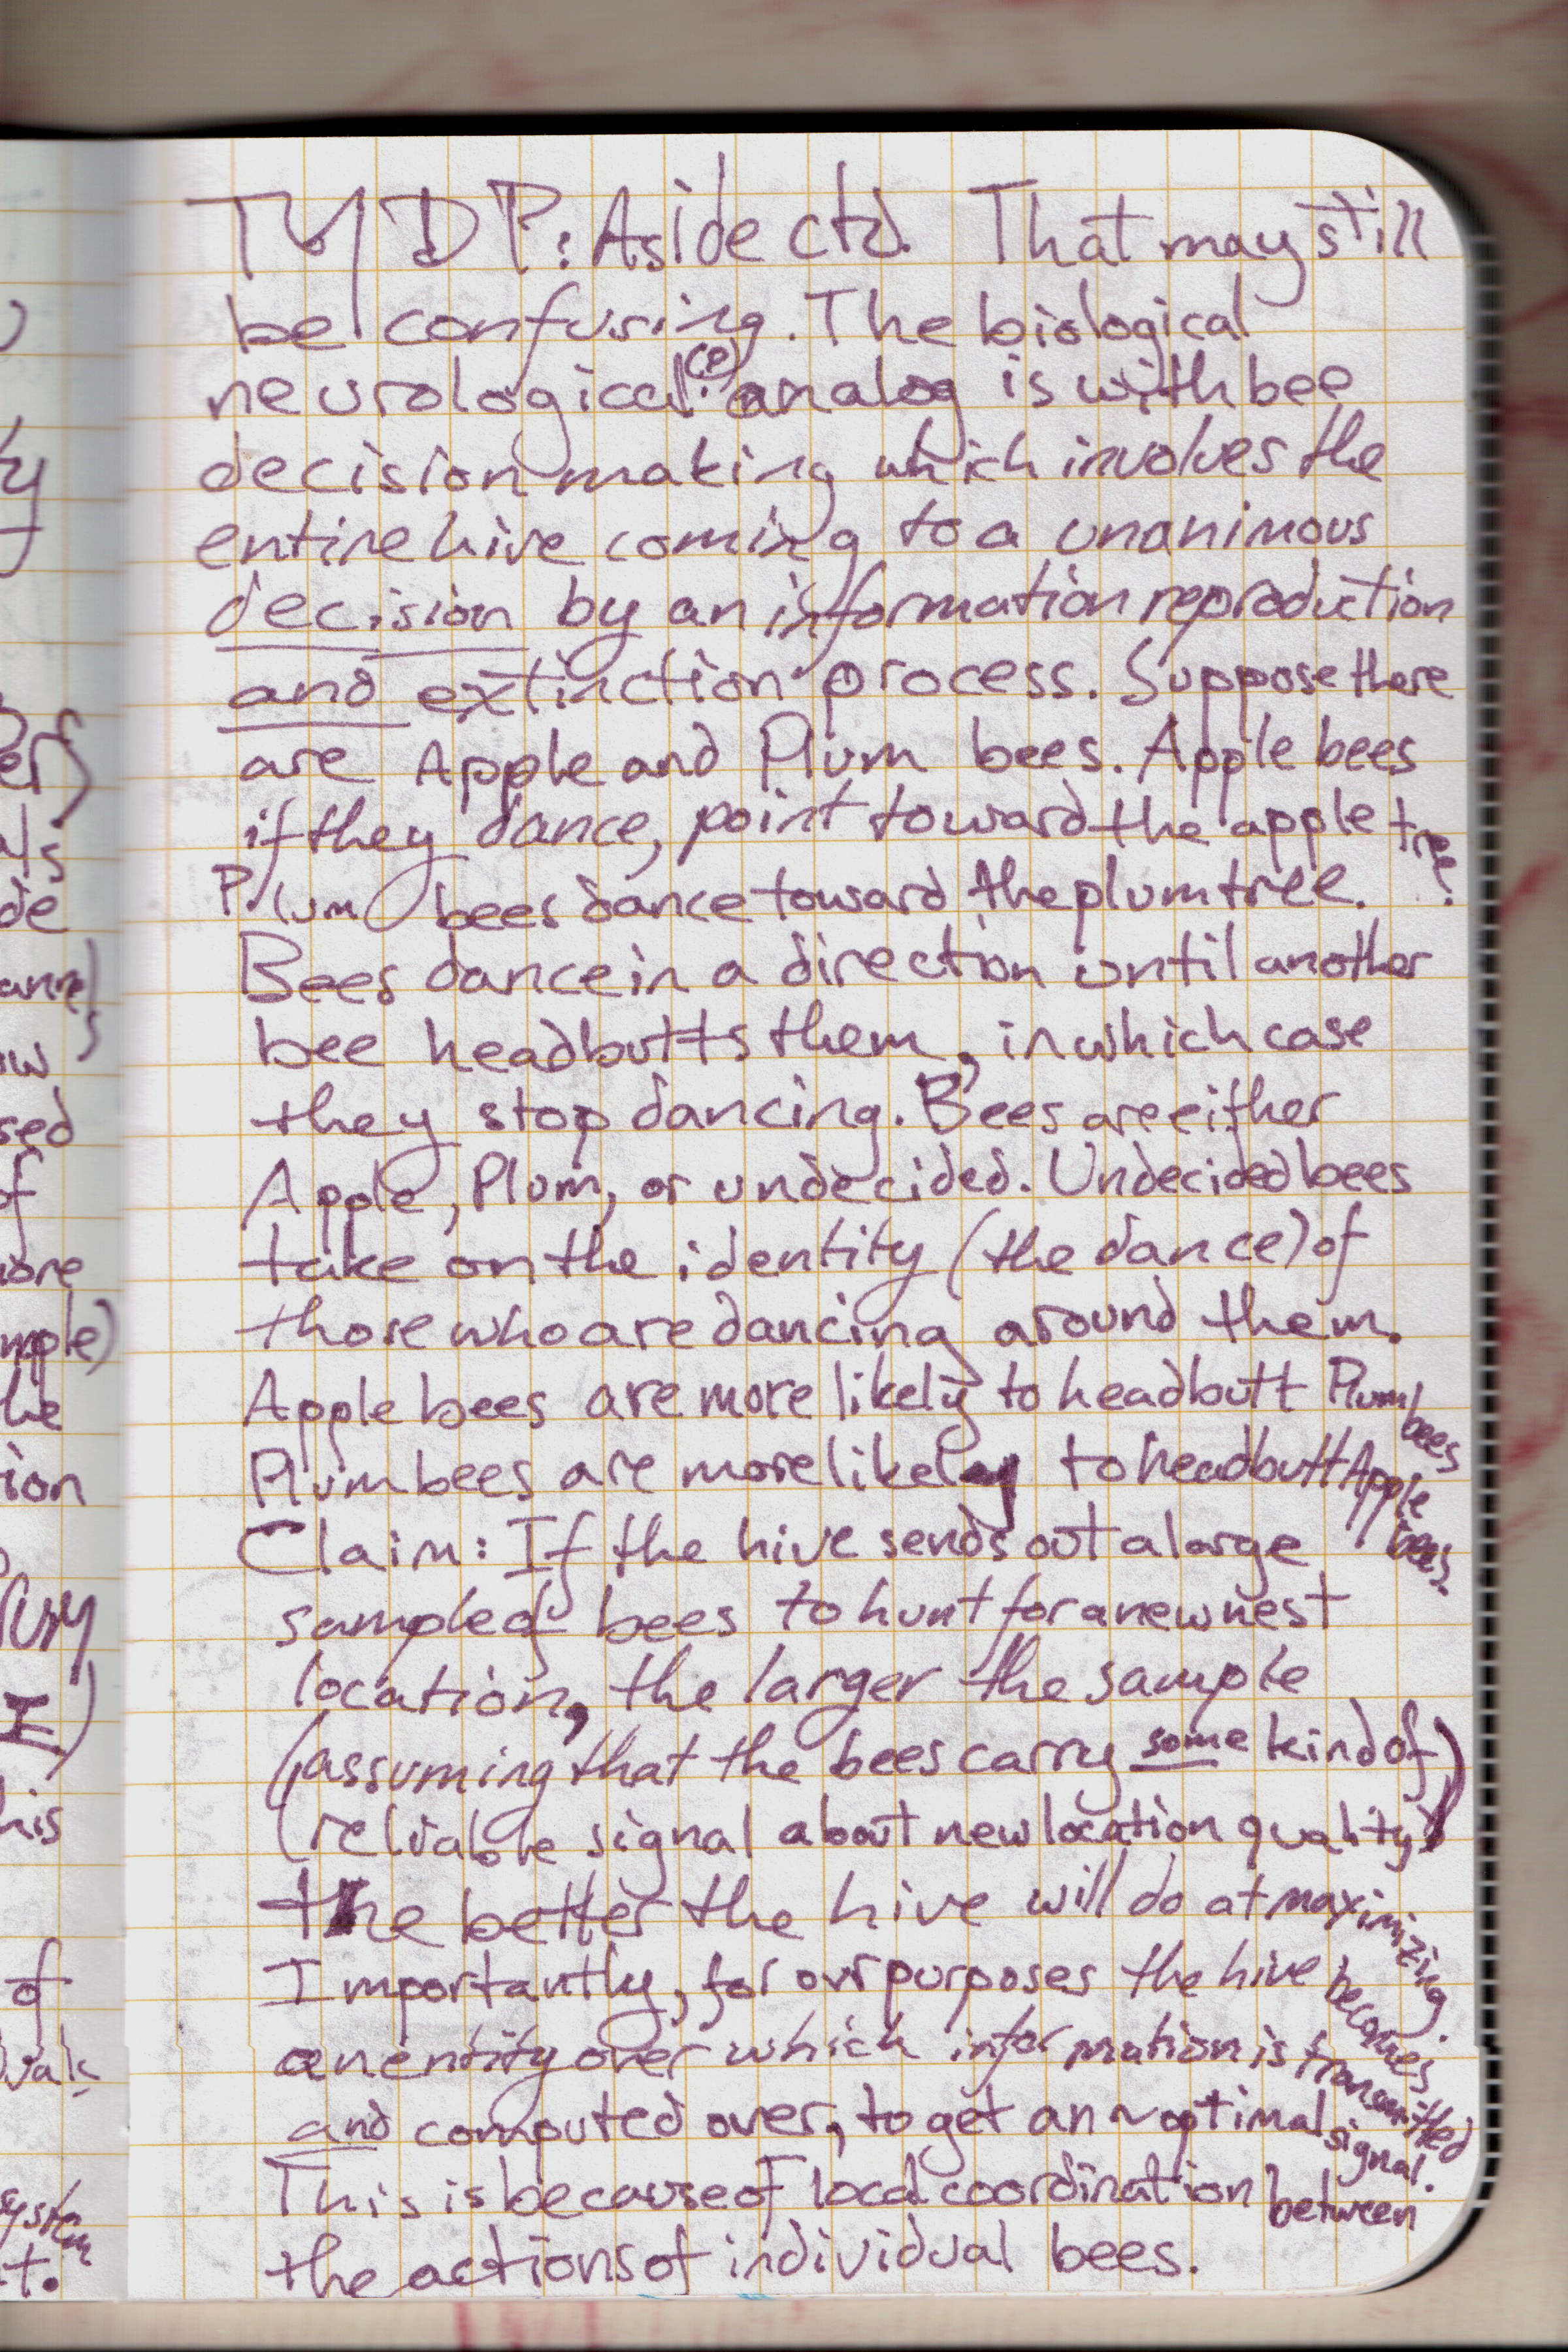 TMDP: Aside ctd. That may still
be confusing. The biological
neurological(?) analog is with bee
decision making which involves the
entire hive coming to a unanimous
decision by an information reproduction
and extinction process. Suppose there
are Apple and Plum bees. Apple bees
if they dance, point toward the apple tree.
Plum bees dance toward the plum tree.
Bees dance in a direction until another
bee headbutts them, in which case
they stop dancing. Bees are either
Apple, Plum, or undecided. Undecided bees
take on the identity (the dance) of
those who are dancing around them.
Apple bees are more likely to headbutt Plum bees
Plum bees are more likely to headbutt Apple bees.
Claim: If the hive sends out a large
sample of bees to hunt for a new nest
location, the larger the sample
(assuming that the bees carry some kind of
reliable signal about new location quality)
the better the hive will do at maximizing.
Importantly, for our purposes the hive becomes
an entity over which information is transmitted
and computed over, to get an ~optimal signal.
This is because of local coordination between
the actions of individual bees.